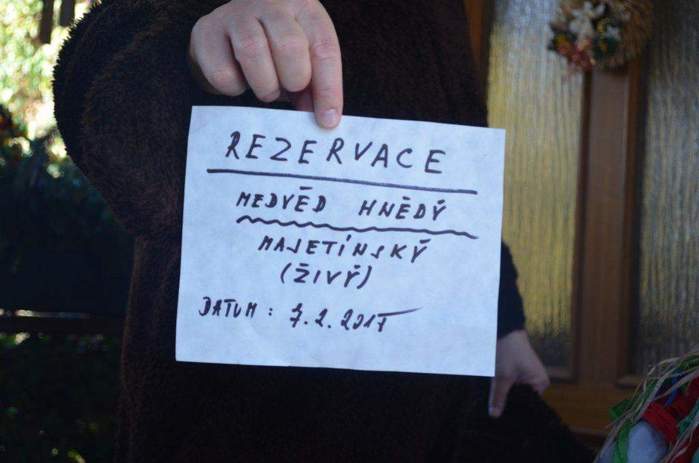 REZERVACE
MEDVĚD HNĚDÝ
MAJETÍNSKÝ
(ŽIVÝ)
DATUM: 7.2.2017